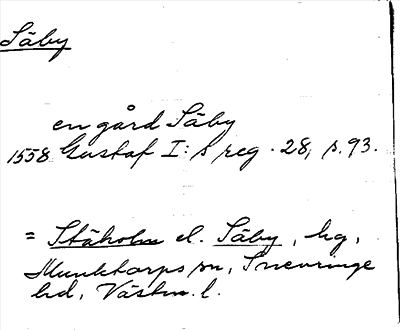 Säby
en gård Säby
1558 Gustaf I:s reg. 28, s. 93.
= Stäholm el. Säby, hg,
Munktorps sn, Snevringe
hd, Västm. l.